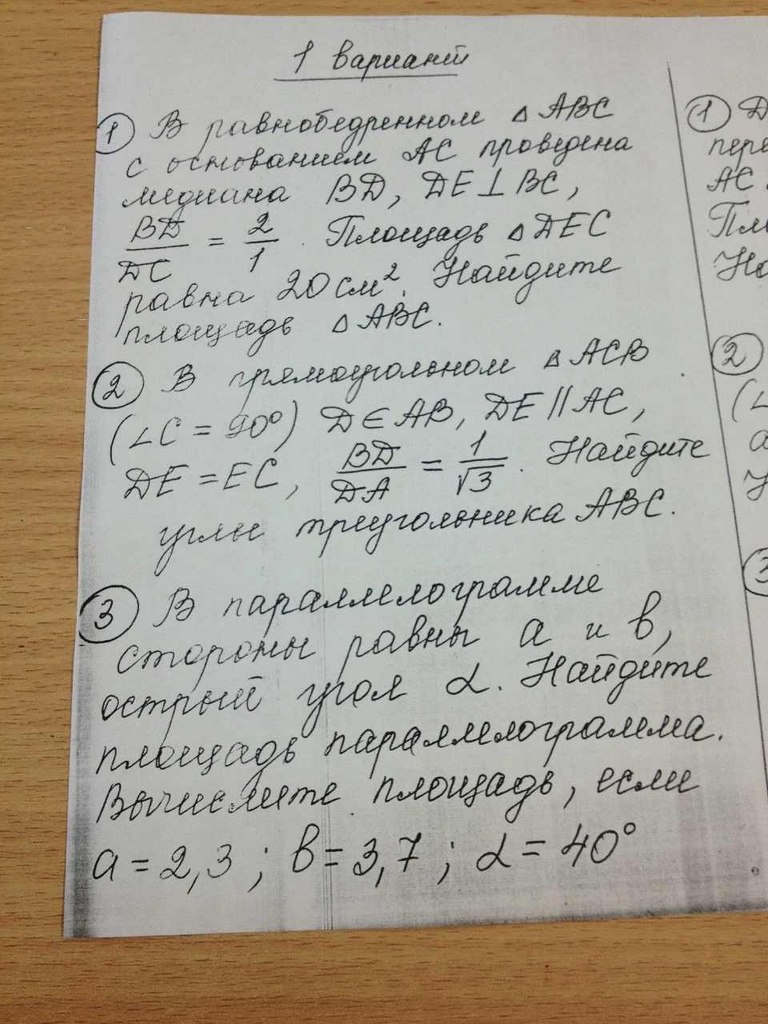 1 вариант
① В равнобедренном △ ABC
с основанием AC проведена
медиана BD, DE⊥BC,
BD/DC = 2/1. Площадь △DEC
равна 20 см². Найдите
площадь △ABC.
② В прямоугольном △ACB
(∠C = 90°) D∈AB, DE∥AC,
DE = EC, BD/DA = 1/√3. Найдите
углы треугольника ABC.
③ В параллелограмме
стороны равны a и b,
острый угол α. Найдите
площадь параллелограмма.
Вычислите площадь, если
a = 2,3; b = 3,7; α = 40°
①
AC
②
(∠